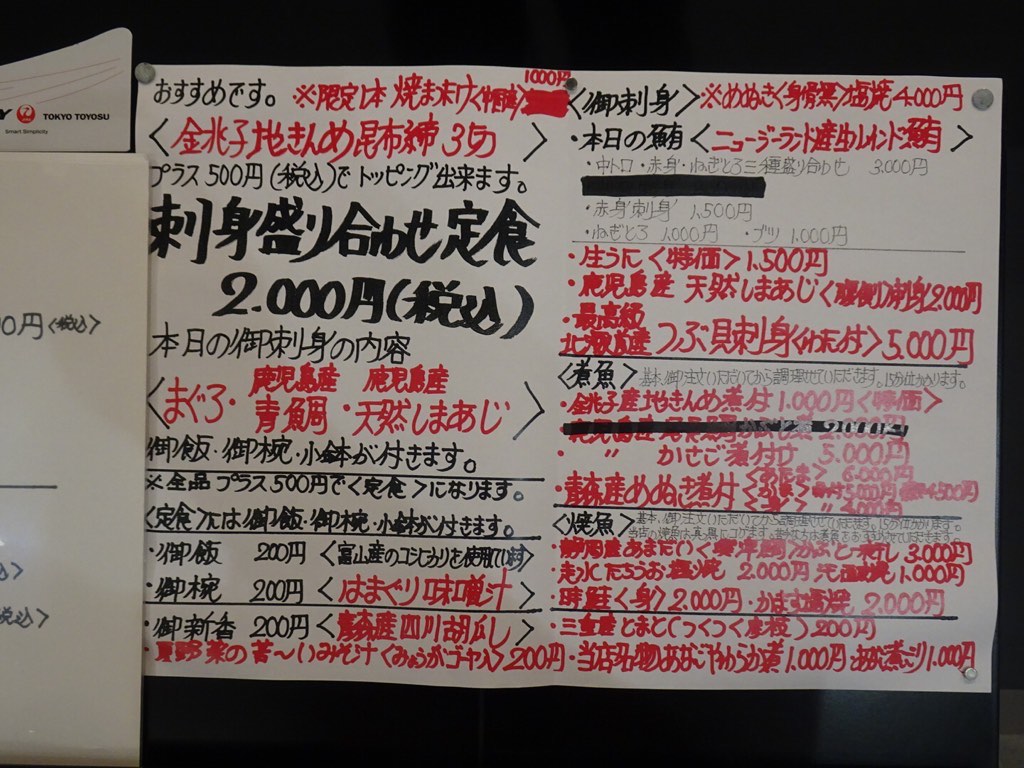 TOKYO TOYOSU
Smart Simplicity
0円<税込>
おすすめです。 ※限定1本 焼まつたけ<中国産> 1000円
<金兆子地きんめ昆布締 3切>
プラス500円(税込)でトッピング出来ます。
刺身盛り合わせ定食
2.000円(税込)
本日の御刺身の内容
鹿児島産 鹿児島産
<まぐろ・青鯛・天然しまあじ>
御飯・御椀・小鉢が付きます。
※全品プラス500円で<定食>になります。
<定食>には御飯・御椀・小鉢が付きます。
・御飯 200円<富山産のコシヒカリを使用しています>
・御椀 200円<はまぐり味噌汁>
・御新香 200円<青森産四川胡瓜>
・夏野菜の苦〜いみそ汁<みょうがゴーヤ入>200円
<御刺身>※めぬき<身骨無>塩焼4.000円
・本日の鮪<ニュージーランド産生インド鮪>
・中トロ・赤身・ねぎとろ三種盛り合わせ 3.000円
・赤身刺身 1,500円
・ねぎとろ 1.000円 ・ブツ 1.000円
・生うに<特価>1.500円
・鹿児島産 天然しまあじ<腹側>刺身2.000円
・最高級
北海島産 つぶ貝刺身<わた付>5.000円
<煮魚>基本、御注文いただいてから調理させていただきます。15分位かかります。
・金兆子産地きんめ煮付 1.000円<特価>
・〃 かさご煮付け 5.000円
・青森産めぬき煮付 <あたま> 6.000円
<焼魚>基本、御注文いただいてから調理させていただきます。15分位かかります。
・静岡産あまだい かぶと蒸し 3.000円
たちうお塩焼 2.000円 1.000円
・時鮭<身>2.000円・かます塩焼 2.000円
・三重産とまと 200円
・当店名物あなごやわらか煮1.000円・あなご煮こごり1.000円